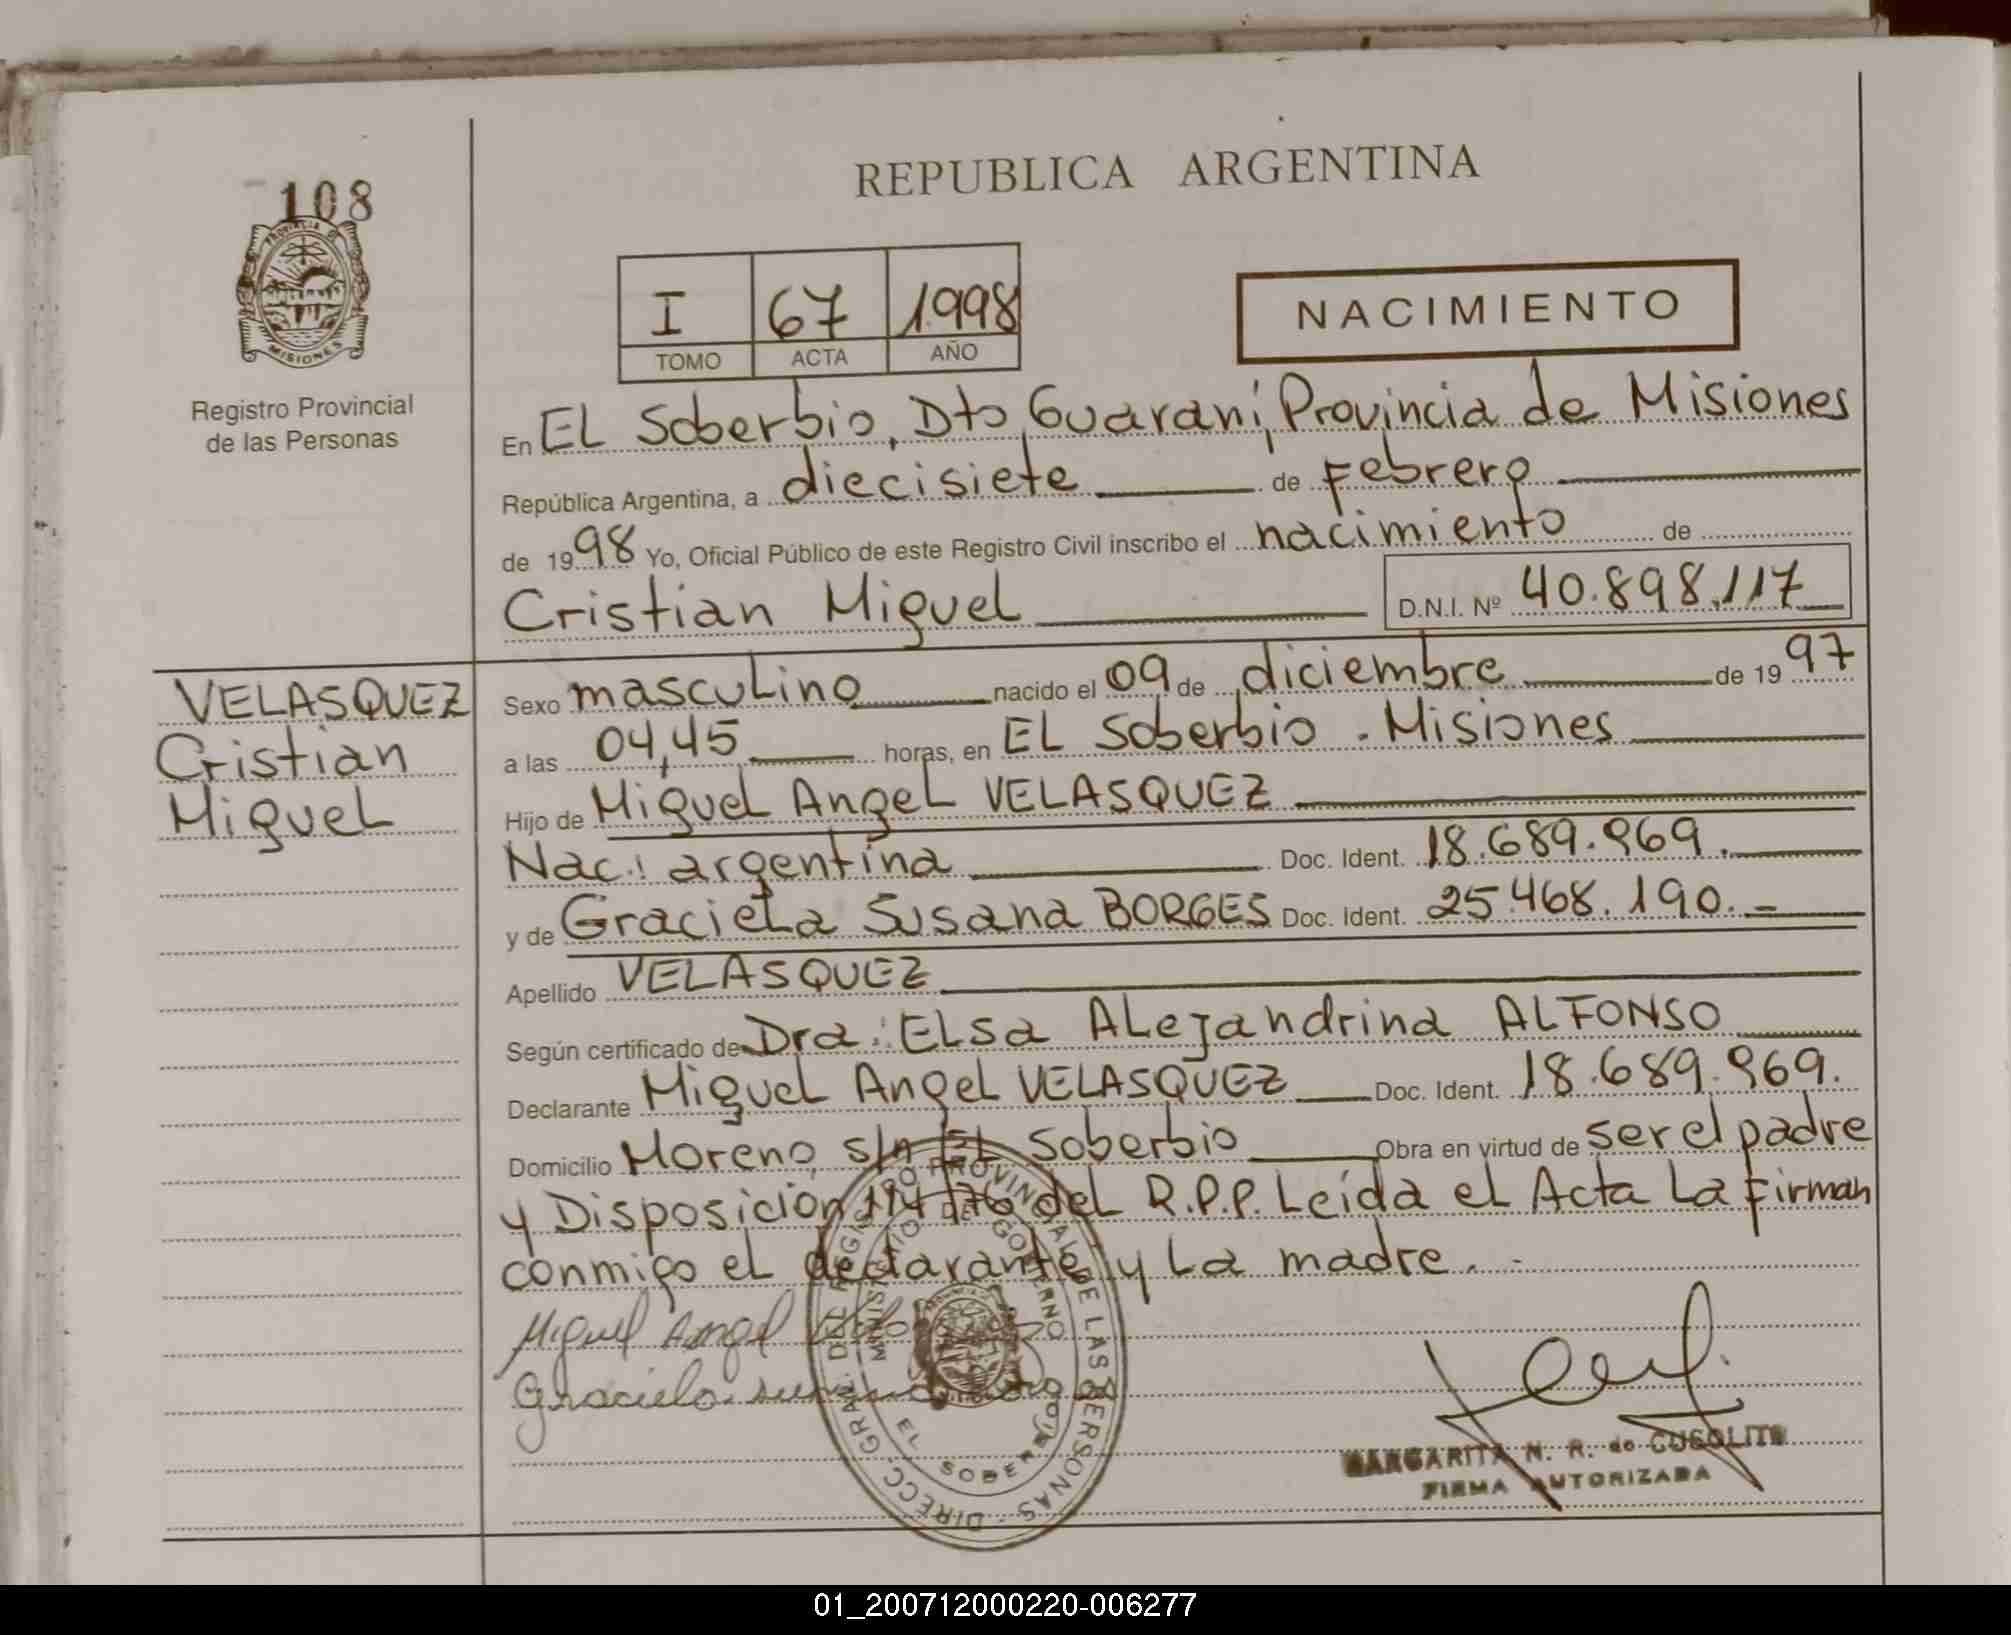 108
PROVINCIA DE
MISIONES
Registro Provincial
de las Personas
REPUBLICA ARGENTINA
I 67 1.998
TOMO ACTA AÑO
NACIMIENTO
En EL Soberbio, Dto Guaraní, Provincia de Misiones
República Argentina, a diecisiete de Febrero
de 1998 Yo, Oficial Público de este Registro Civil inscribo el nacimiento de
Cristian Miguel D.N.I. Nº 40.898.117
VELASQUEZ
Cristian
Miguel
Sexo masculino nacido el 09 de diciembre de 1997
a las 04,45 horas, en EL Soberbio . Misiones
Hijo de Miguel Angel VELASQUEZ
Nac: argentina Doc. Ident. 18.689.969.
y de Graciela Susana BORGES Doc. Ident. 25.468.190.-
Apellido VELASQUEZ
Según certificado de Dra: ELsa ALejandrina ALFONSO
Declarante Miguel Angel VELASQUEZ Doc. Ident. 18.689.969.
Domicilio Moreno s/n EL Soberbio Obra en virtud de ser el padre
y Disposición 114/76 del R.P.P. Leída el Acta La Firman
conmigo el declarante y La madre. -
Miguel Angel
Graciela susana
DIRECC. GRAL. DEL REGISTRO PROVINCIAL DE LAS PERSONAS
MINISTERIO DE GOBIERNO
EL SOBERBIO
MARGARITA N. R. de CUSOLITO
FIRMA AUTORIZADA
01_200712000220-006277